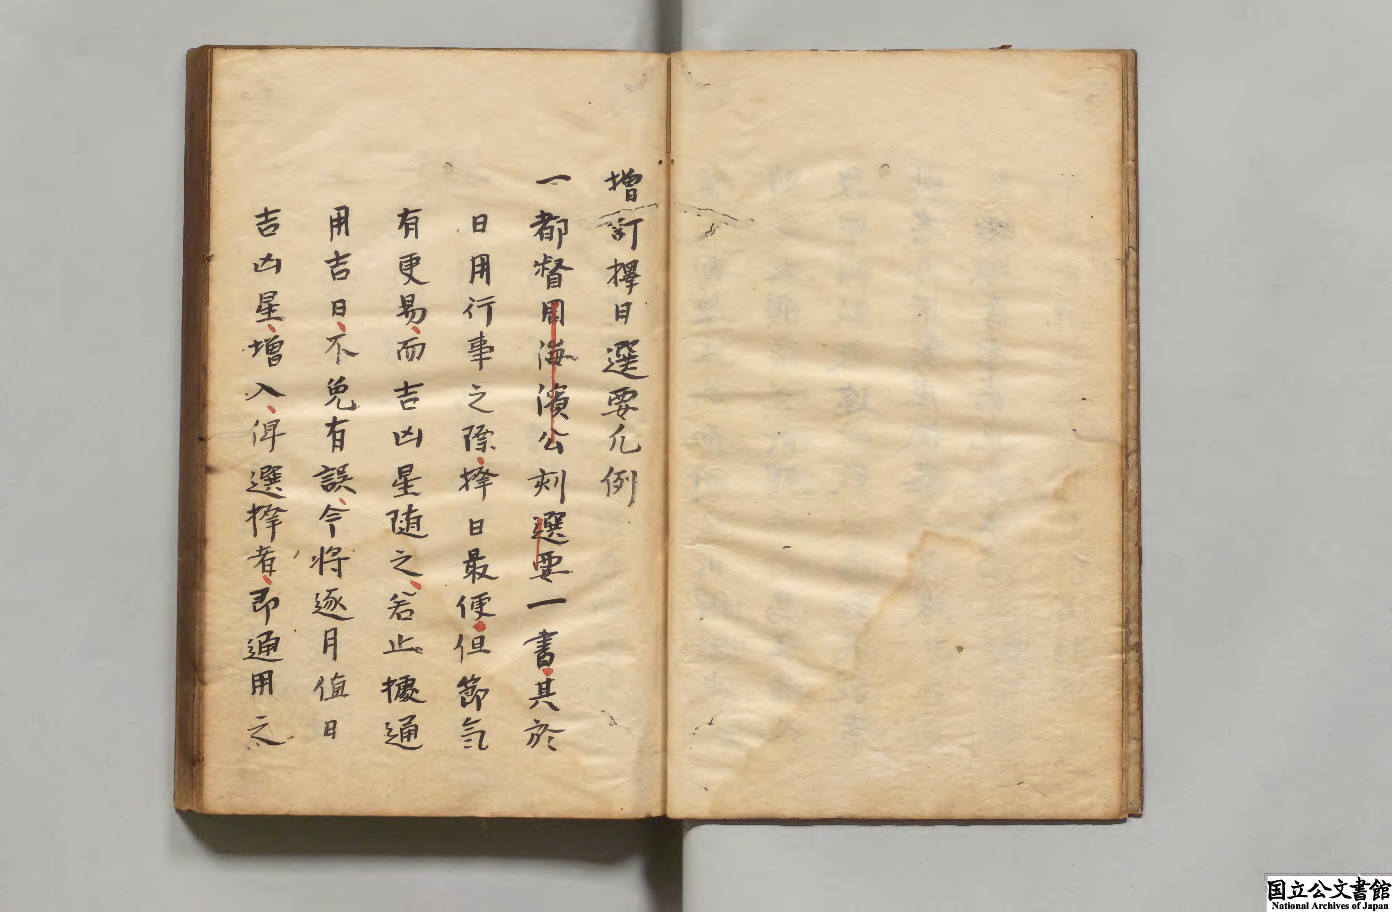 增訂擇日選要凢例
一都督周海濱公刻選要一書其於
日用行事之際擇日最便但節氣
有更易而吉凶星随之若止據通
用吉日不免有誤今將逐月值日
吉凶星增入俾選擇者即通用之
国立公文書館
National Archives of Japan